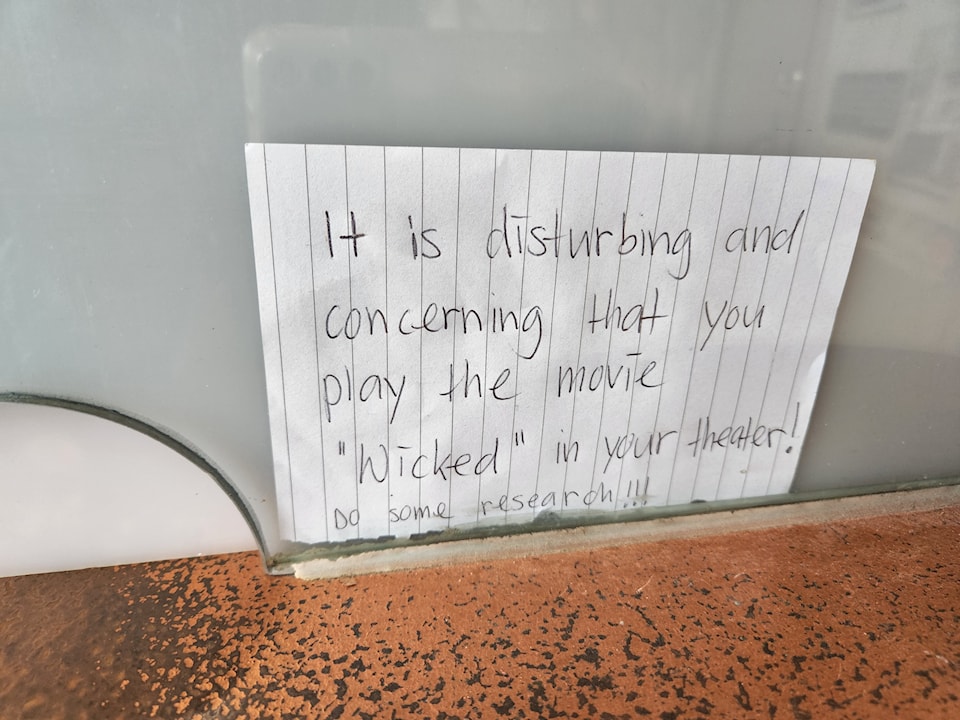 It is disturbing and
concerning that you
play the movie
"Wicked" in your theater!
Do some research!!!